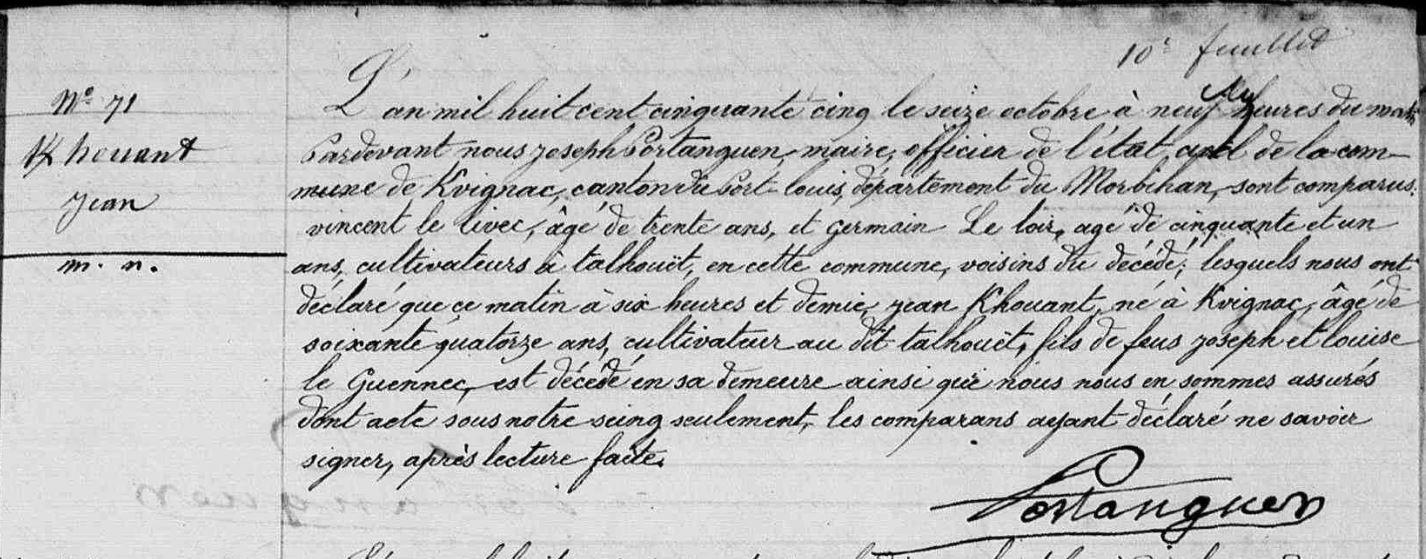 10e feuillet
N° 71
Khouant
Jean
m. n.
L'an mil huit cent cinquante cinq le seize octobre à neuf heures du matin
Pardevant nous joseph Portanguen, maire, officier de l'état civil de la com-
mune de Kvignac, canton du Port-louis, département du Morbihan, sont comparus.
vincent le livec, âgé de trente ans, et germain Le loir, agé de cinquante et un
ans, cultivateurs à talhouët, en cette commune, voisins du décédé; lesquels nous ont
déclaré que ce matin à six heures et demie, jean Khouant, né à Kvignac, âgé de
soixante quatorze ans, cultivateur au dit talhouët, fils de feus joseph et louise
le Guennec, est décédé en sa demeure ainsi que nous nous en sommes assurés
dont acte sous notre seing seulement, les comparans ayant déclaré ne savoir
signer, après lecture faite.
Portanguen